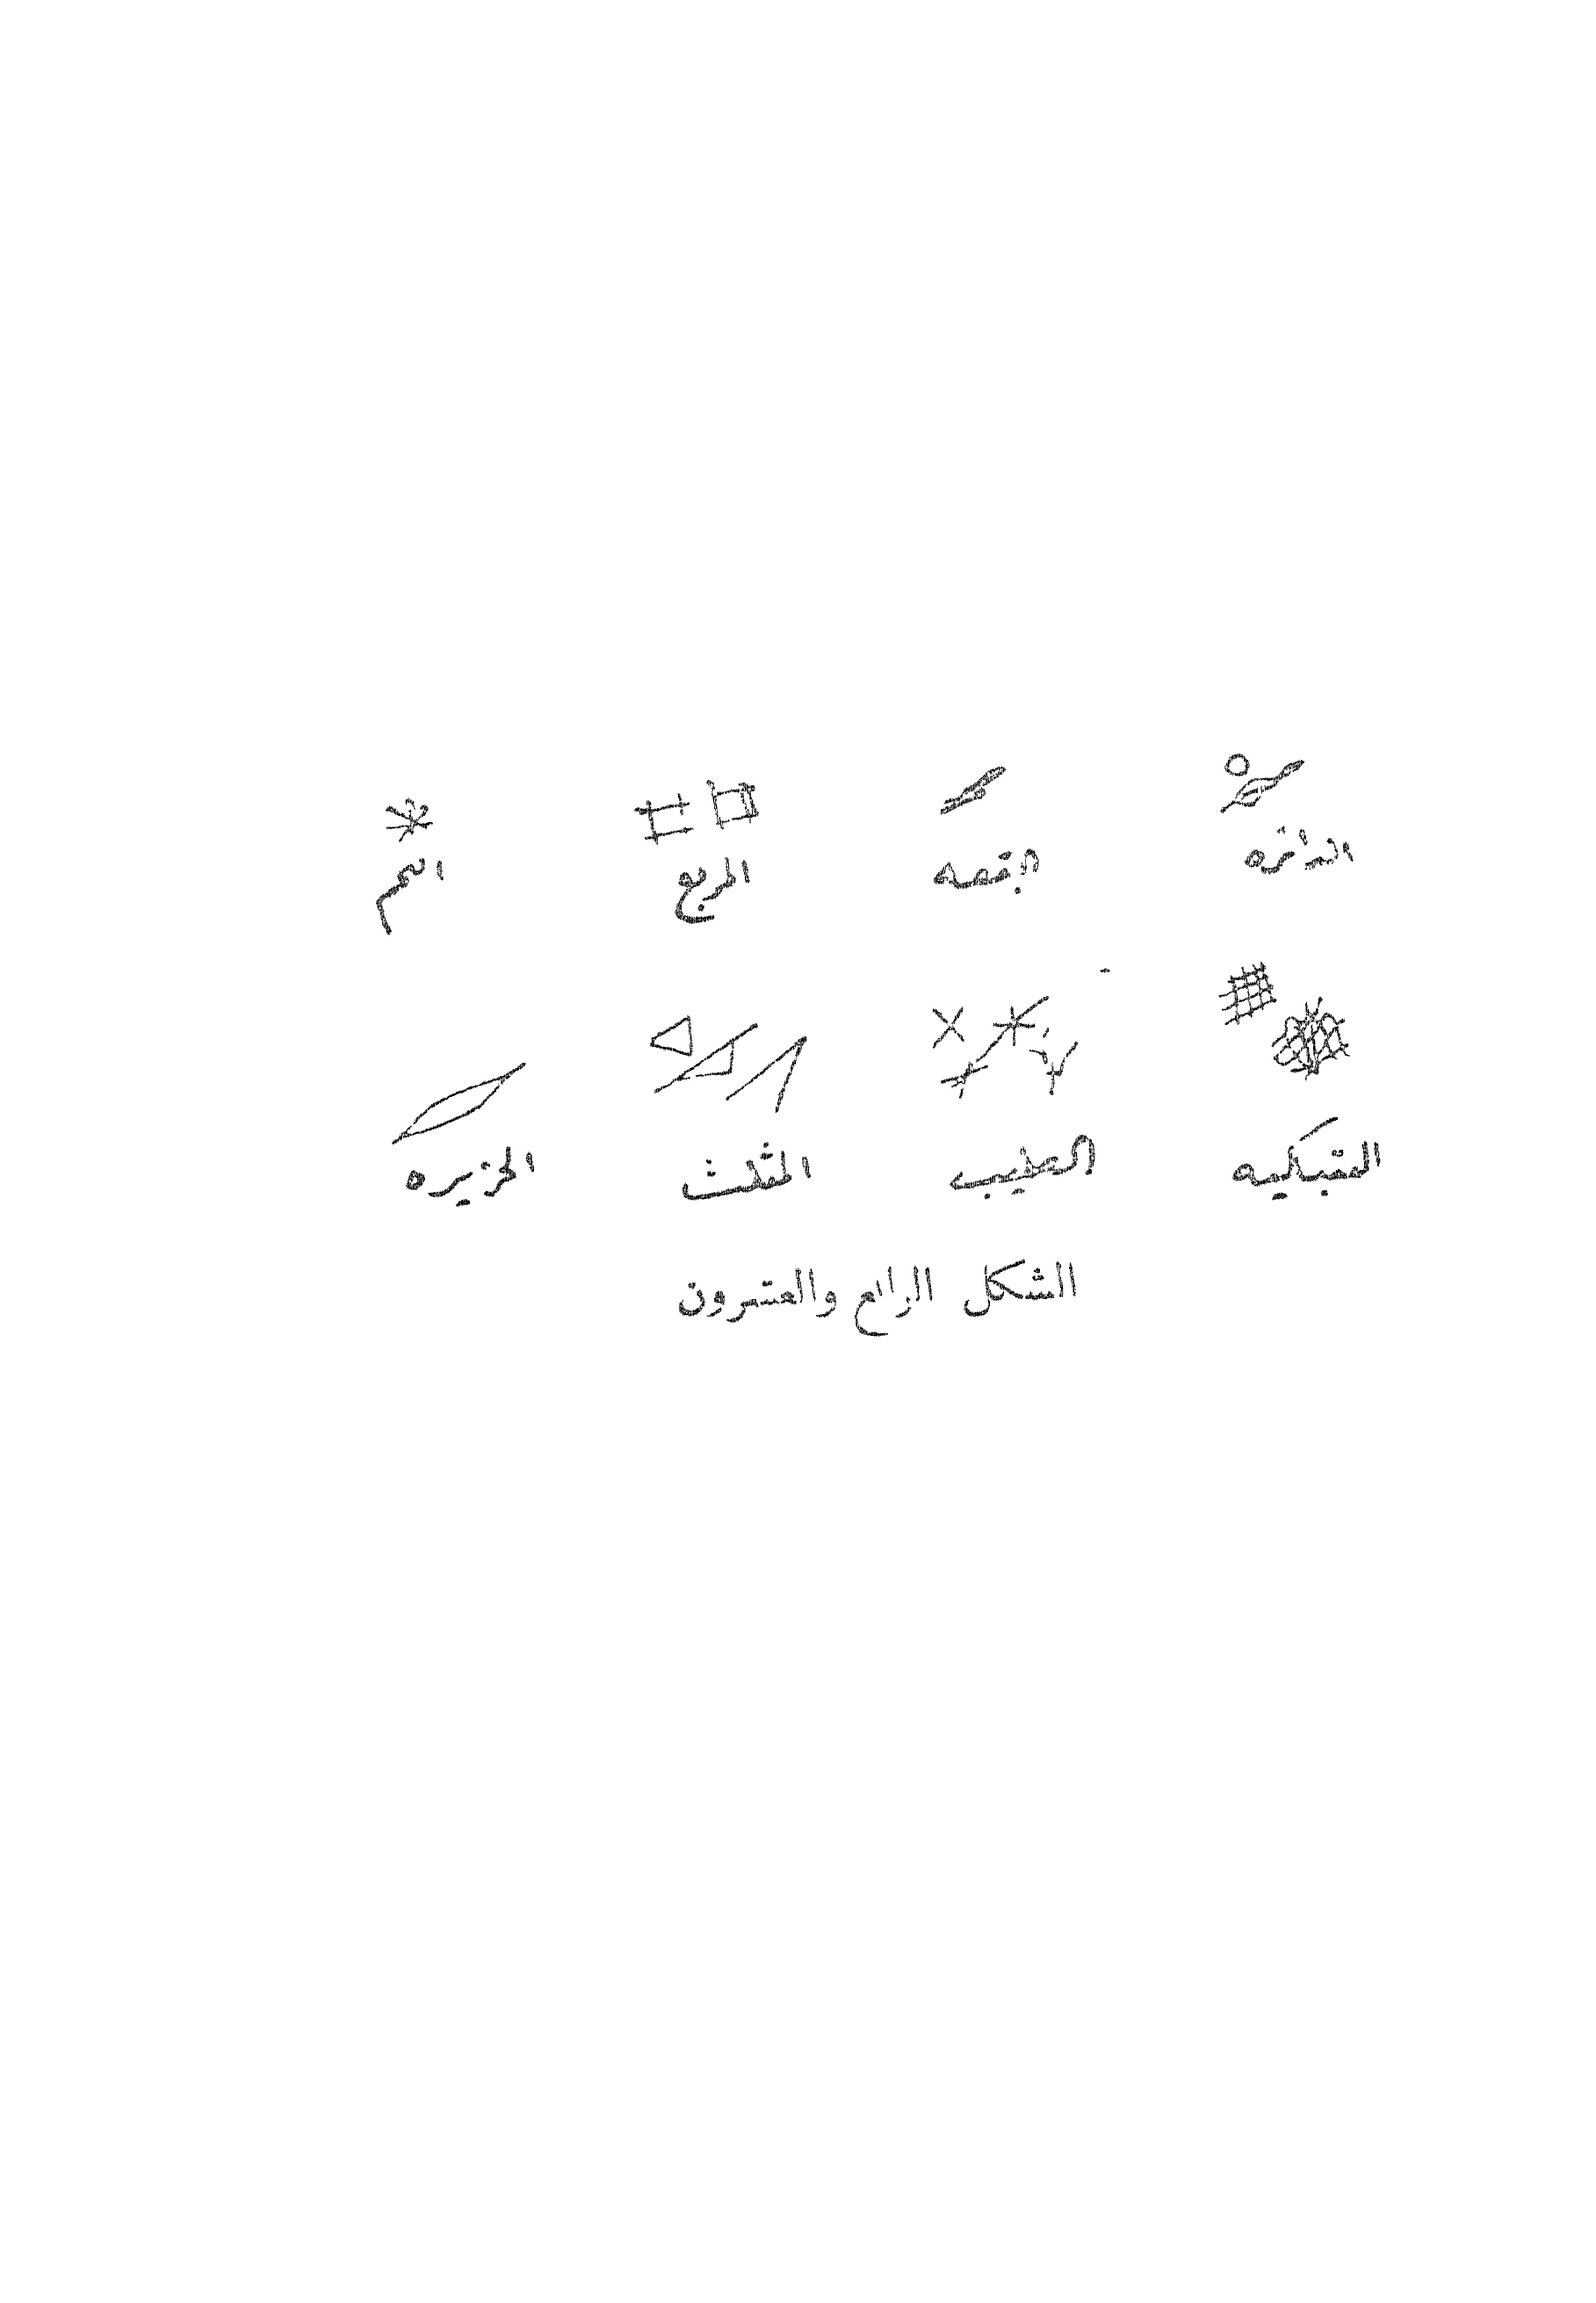 الدائره البقعه المربع النجم
الشبكيه الصليب المثلث الجزيره
الشكل الرابع والعشرون